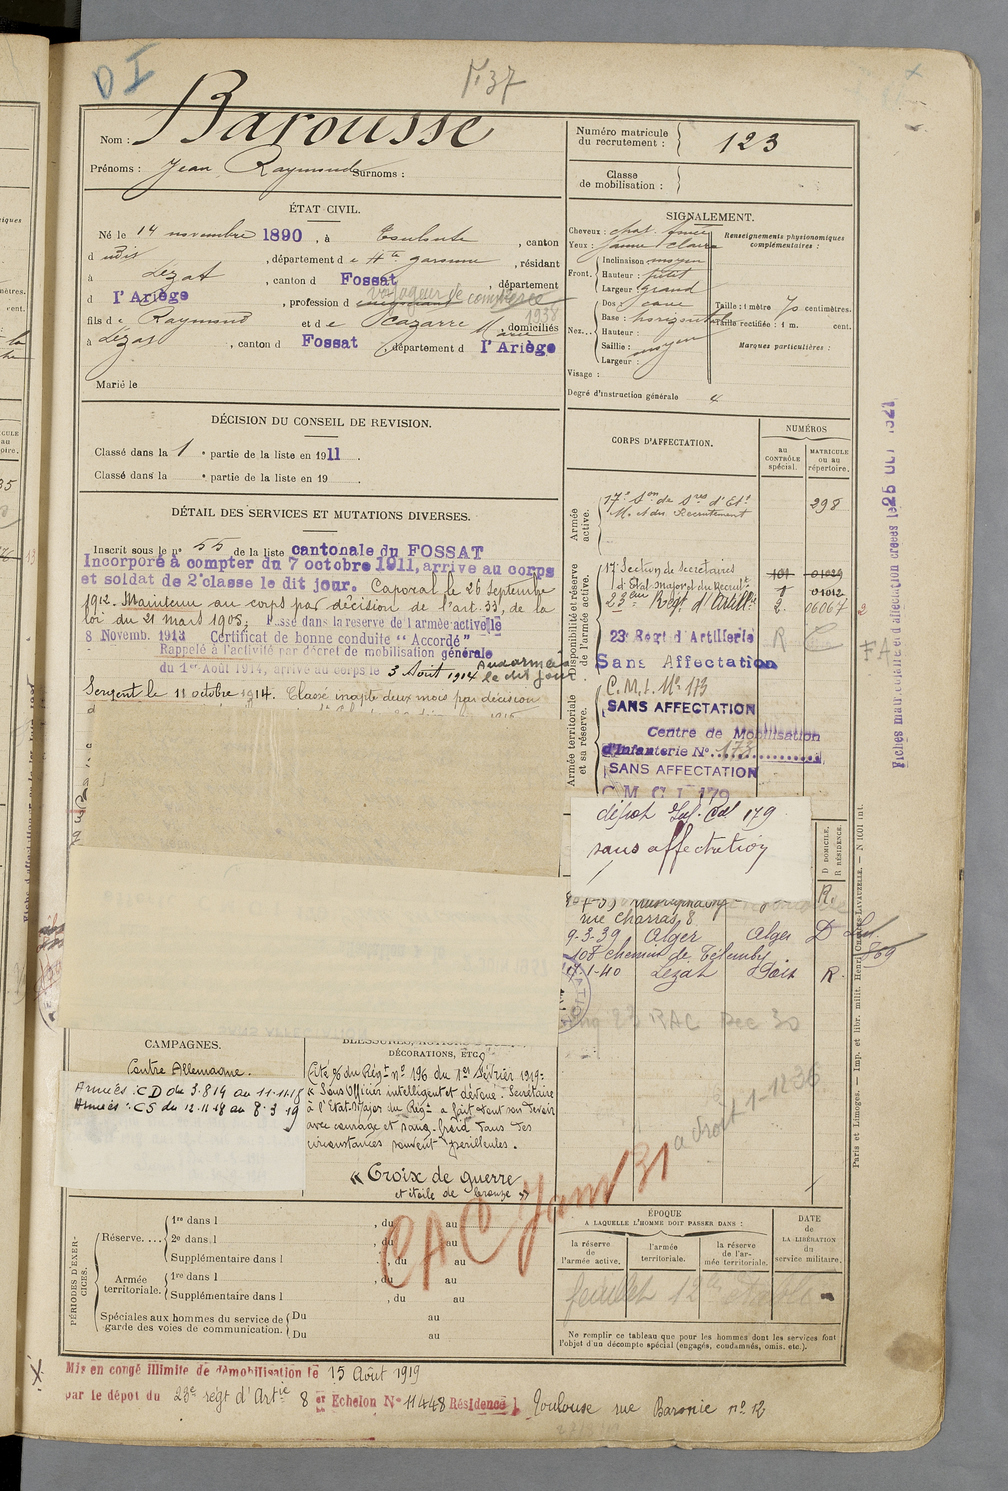 D I
F.37
Nom : Barousse
Prénoms : Jean, Raymond Surnoms :
Numéro matricule du recrutement : 123
Classe de mobilisation :
ÉTAT CIVIL.
Né le 14 novembre 1890, à Toulouse, canton
d udit, département de Hte garonne, résidant
à Lézat, canton d Fossat, département
d l'Ariège, profession de voyageur de commerce
1938
fils de Raymond et de Cazarre Marie, domiciliés
à Lézat, canton d Fossat, département d l'Ariège
Marié le
SIGNALEMENT.
Cheveux : chat. foncé
Yeux : jaune claire
Front. Inclinaison moyen
Hauteur : petit
Largeur grand
Nez. Dos : cave
Base : horizontal
Hauteur :
Saillie : moyen
Largeur :
Visage :
Degré d'instruction générale 4
Renseignements physionomiques complémentaires :
Taille : 1 mètre 70 centimètres.
Taille rectifiée : 1 m. cent.
Marques particulières :
DÉCISION DU CONSEIL DE REVISION.
Classé dans la 1 e partie de la liste en 1911.
Classé dans la e partie de la liste en 19
DÉTAIL DES SERVICES ET MUTATIONS DIVERSES.
Inscrit sous le n° 55 de la liste cantonale du FOSSAT
Incorporé à compter du 7 octobre 1911, arrive au corps
et soldat de 2e classe le dit jour. Caporal le 26 Septembre
1912. Maintenu au corps par décision de l'art. 33, de la
loi du 21 mars 1905; Passé dans la reserve de l'armée active le
8 Novemb. 1913 Certificat de bonne conduite "Accordé"
Rappelé à l'activité par décret de mobilisation générale
du 1er Août 1914, arrivé au corps le 3 Août 1914 Aux armées
le dit jour
Sergent le 11 octobre 1914. Classé inapte deux mois par décision
CORPS D'AFFECTATION.
NUMÉROS
au CONTRÔLE spécial.
MATRICULE ou au répertoire.
Armée active.
17e Son de Sres d'Et.
M. et du Recrutement 298
Disponibilité et réserve de l'armée active.
17 Section de Secrétaires 101 01029
d'Etat-major et du Recrutt 1 01012
23eme Regt d'Artillie 2. 06067
23e Regt d'Artillerie R
Sans Affectation
FA
Armée territoriale et sa réserve.
C.M.I. N° 173
SANS AFFECTATION
Centre de Mobilisation
d'Infanterie N° 173
SANS AFFECTATION
C M C I 179
dépot Inf. Cal 179
sans affectation
D DOMICILE.
R RÉSIDENCE.
R.
rue Charras 8
9-3-39 Alger Alger D
108 chemin de Télemly
17-1-40 Lézat R.
RAC Dec 30
à droit 1-1236
CAMPAGNES.
Contre Allemagne.
Armées : CD du 3.8 14 au 11.11.18
Armées : CS du 12.11.18 au 8.3 19
DÉCORATIONS, ETC.
Cité O/ du Régt n° 196 du 1er Février 1919 :
« Sous Officier intelligent et dévoué. Secrétaire
à l'Etat-Major du Régt a fait tout son devoir
avec courage et sang-froid dans des
circonstances souvent périlleuses.
« Croix de guerre
et étoile de bronze »
CAC Janv 31
PÉRIODES D'EXERCICES.
Réserve.... 1re dans l , du au
2e dans l , du au
Supplémentaire dans l , du au
Armée territoriale. 1re dans l , du au
Supplémentaire dans l , du au
Spéciales aux hommes du service de garde des voies de communication. Du au
Du au
ÉPOQUE
A LAQUELLE L'HOMME DOIT PASSER DANS :
la réserve de l'armée active.
l'armée territoriale.
la réserve de l'armée territoriale.
DATE de LA LIBÉRATION du service militaire.
Ne remplir ce tableau que pour les hommes dont les services font
l'objet d'un décompte spécial (engagés, condamnés, omis, etc.).
Mis en congé illimité de démobilisation le 15 Août 1919
par le dépot du 23e régt d'Artie 8 er Echelon N° 11448 Résidence : Toulouse rue Baronie n° 12
Paris et Limoges. — Imp. et libr. milit. Henri CHARLES-LAVAUZELLE. — N 1001 int.